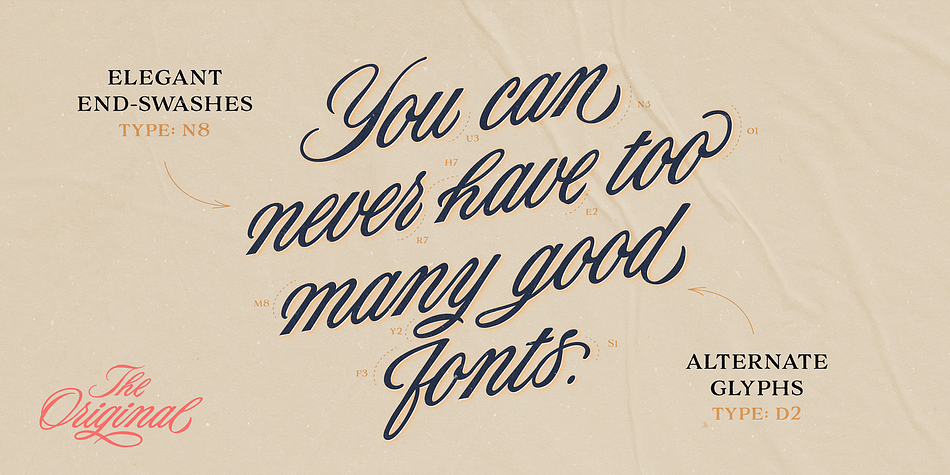 ELEGANT
END-SWASHES
TYPE: N8
You can
N3
U3
O1
H7
never have too
E2
R7
many good
M8
Y2
fonts.
S1
F3
ALTERNATE
GLYPHS
TYPE: D2
The
Original